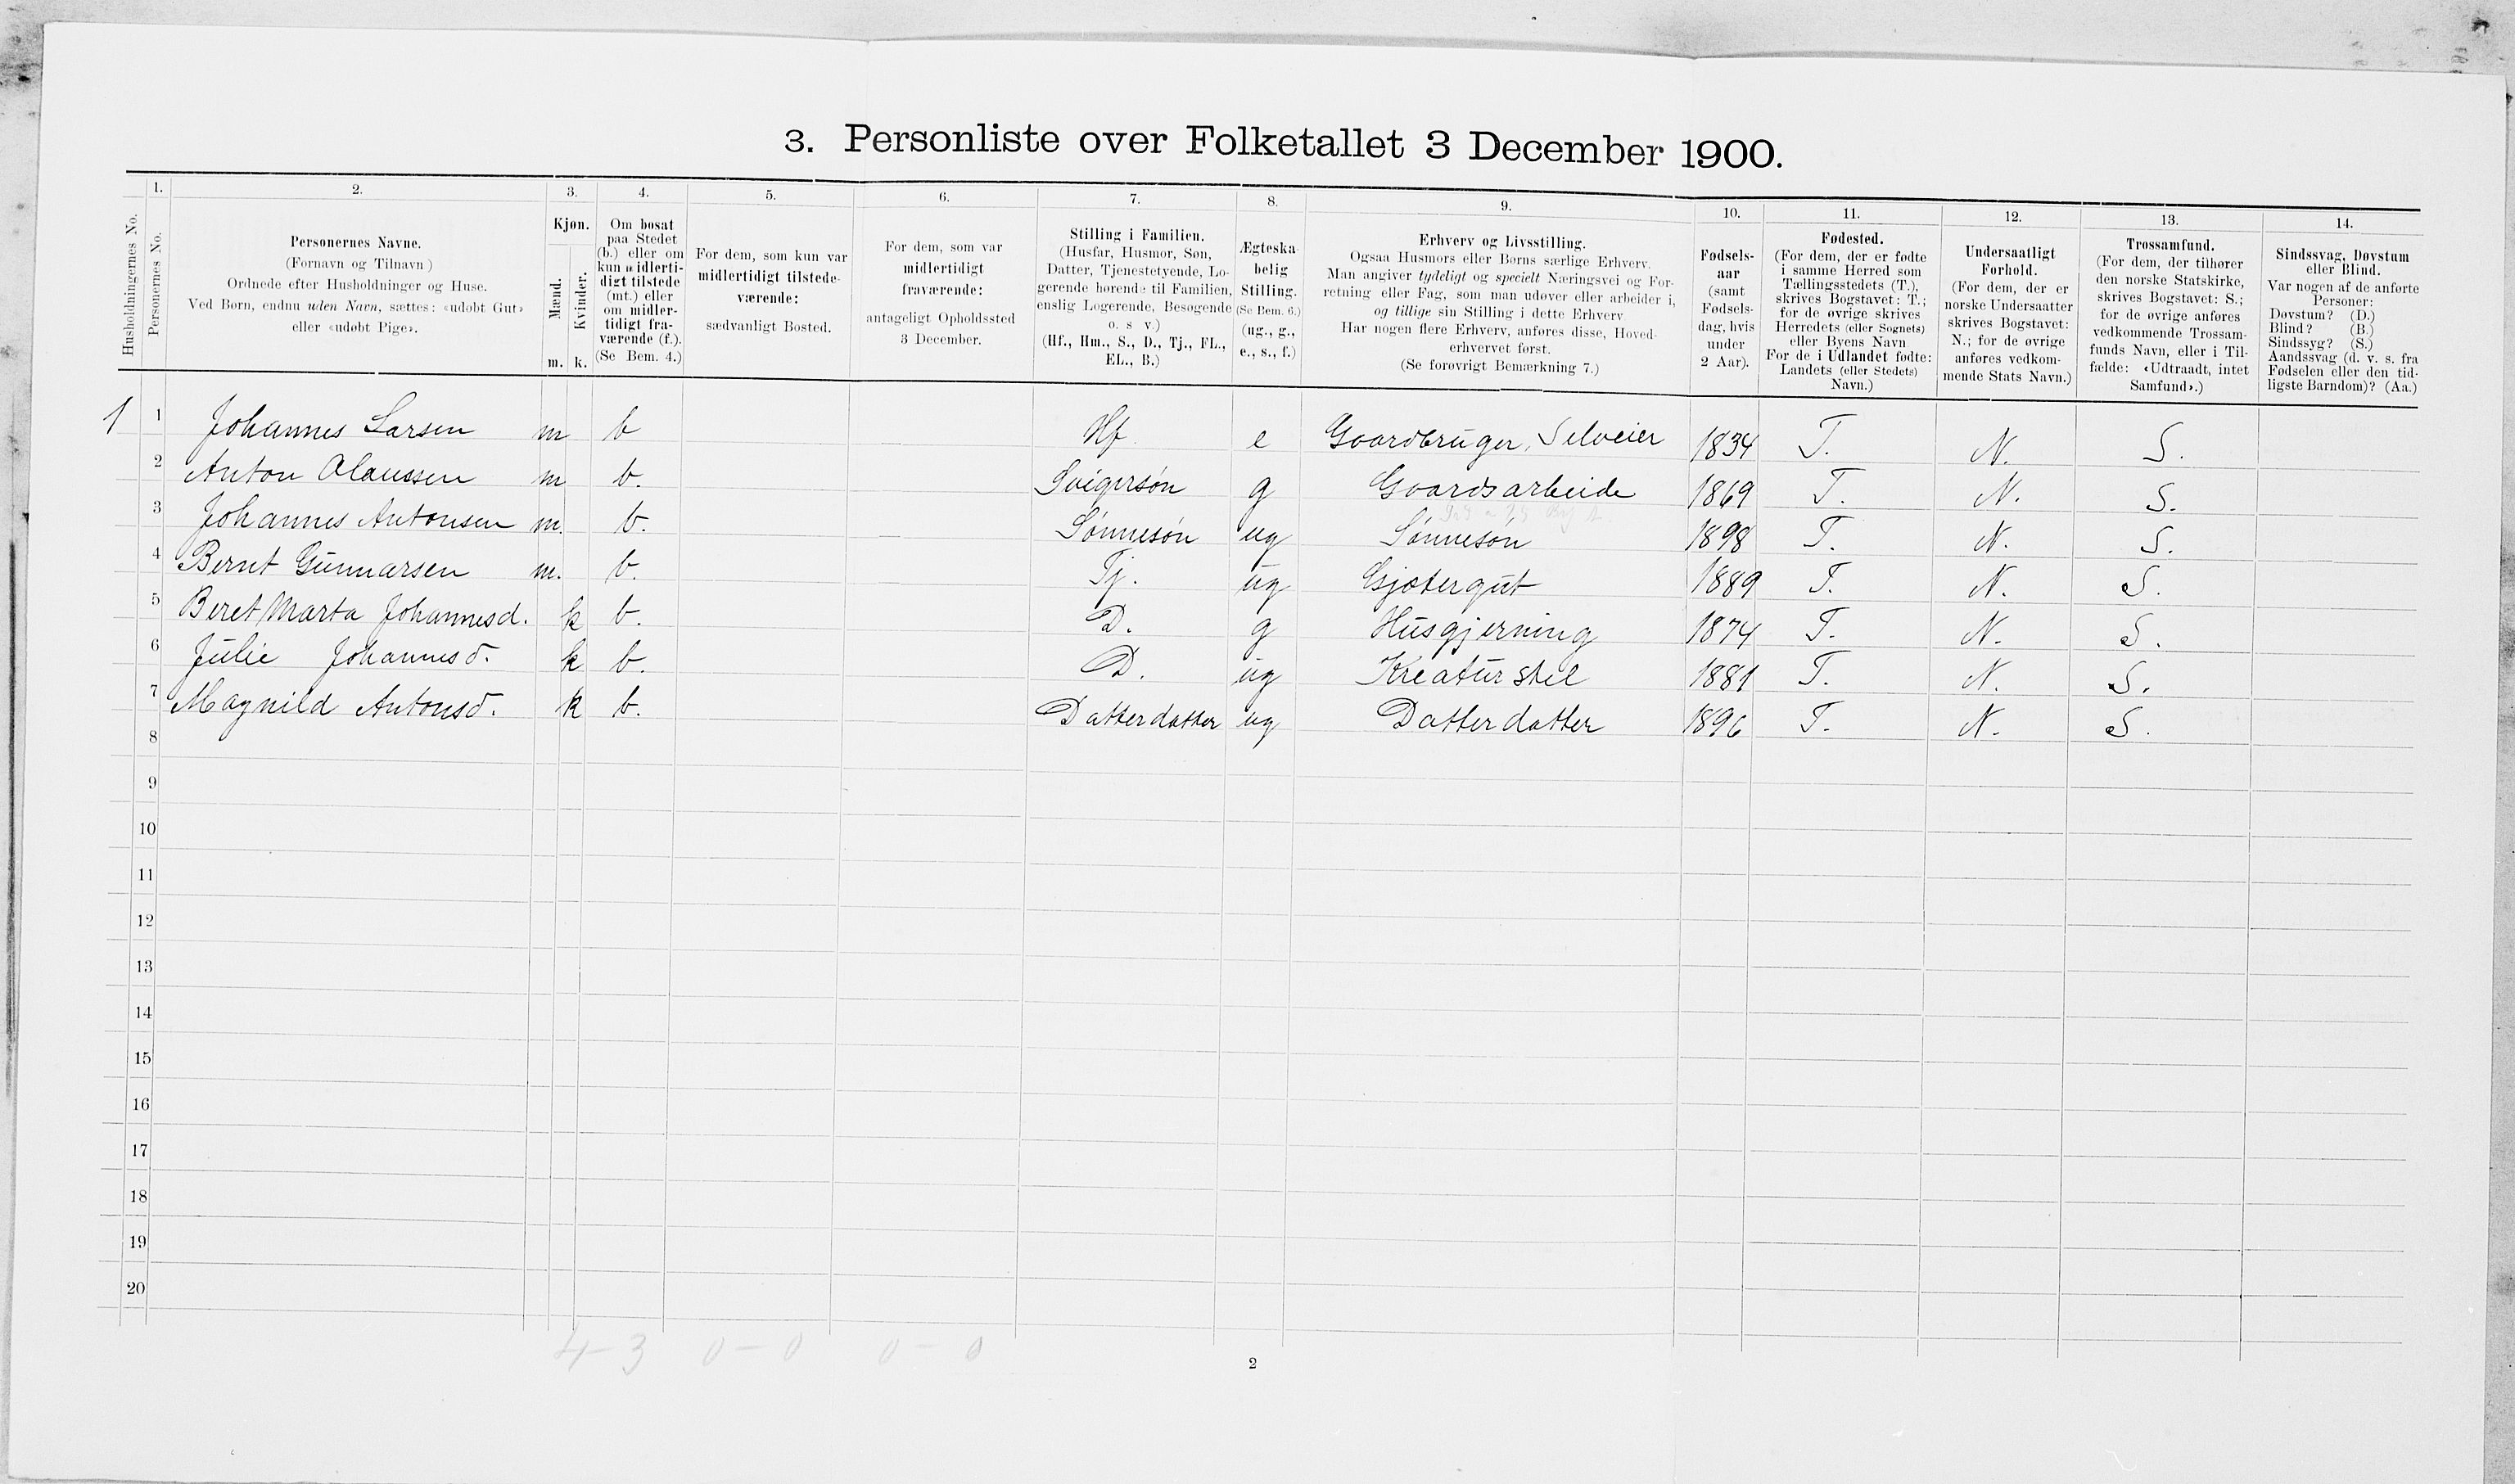 3. Personliste over Folketallet 3 December 1900.
Husholdningernes No.
1.
Personernes No.
2.
Personernes Navne.
(Fornavn og Tilnavn)
Ordnede efter Husholdninger og Huse.
Ved Børn, endnu uden Navn, sættes: «udøbt Gut»
eller «udøbt Pige».
3.
Kjøn.
Mænd.
Kvinder.
m. k.
4.
Om bosat
paa Stedet
(b.) eller om
kun midlerti-
digt tilstede
(mt.) eller
om midler-
tidigt fra-
værende (f.).
(Se Bem. 4.)
5.
For dem, som kun var
midlertidigt tilstede-
værende:
sædvanligt Bosted.
6.
For dem, som var
midlertidigt
fraværende:
antageligt Opholdssted
3 December.
7.
Stilling i Familien.
(Husfar, Husmor, Søn,
Datter, Tjenestetyende, Lo-
gerende hørende til Familien,
enslig Logerende, Besøgende
o. s v.)
(Hf., Hm., S., D., Tj., FL.,
EL., B.)
8.
Ægteska-
belig
Stilling.
(Se Bem. 6.)
(ug., g.,
e., s., f.)
9.
Erhverv og Livsstilling.
Ogsaa Husmors eller Børns særlige Erhverv.
Man angiver tydeligt og specielt Næringsvei og For-
retning eller Fag, som man udøver eller arbeider i,
og tillige sin Stilling i dette Erhverv.
Har nogen flere Erhverv, anføres disse, Hoved-
erhvervet først.
(Se forøvrigt Bemærkning 7.)
10.
Fødsels-
aar
(samt
Fødsels-
dag, hvis
under
2 Aar).
11.
Fødested.
(For dem, der er fødte
i samme Herred som
Tællingsstedets (T.),
skrives Bogstavet: T.;
for de øvrige skrives
Herredets (eller Sognets)
eller Byens Navn
For de i Udlandet fødte:
Landets (eller Stedets)
Navn.)
12.
Undersaatligt
Forhold.
(For dem, der er
norske Undersaatter
skrives Bogstavet:
N.; for de øvrige
anføres vedkom-
mende Stats Navn.)
13.
Trossamfund.
(For dem, der tilhører
den norske Statskirke,
skrives Bogstavet: S.;
for de øvrige anføres
vedkommende Trossam-
funds Navn, eller i Til-
fælde: «Udtraadt, intet
Samfund».)
14.
Sindssvag, Døvstum
eller Blind.
Var nogen af de anførte
Personer:
Døvstum? (D.)
Blind? (B.)
Sindssyg? (S.)
Aandssvag (d. v. s. fra
Fødselen eller den tid-
ligste Barndom)? (Aa.)
1 1 Johannes Larsen m b Hf e Gaardbruger, Selveier 1834 T. N. S.
2 Anton Olaussen m b. Svigersøn g Gaardsarbeide 1869 T. N. S.
3 Johannes Antonsen m. b. Sønnesøn ug Sønnesøn 1898 T. N. S.
4 Bernt Gunnarsen m. b. Tj. ug Gjætergut 1889 T. N. S.
5 Beret Marta Johannesd. k b. D. g Husgjerning 1874 T. N. S.
6 Julie Johannesd. k b. D. ug Kreaturstel 1881 T. N. S.
7 Magnild Antonsd. k b. Datterdatter ug Datterdatter 1896 T. N. S.
8
9
10
11
12
13
14
15
16
17
18
19
20
4-3 0-0 0-0
2